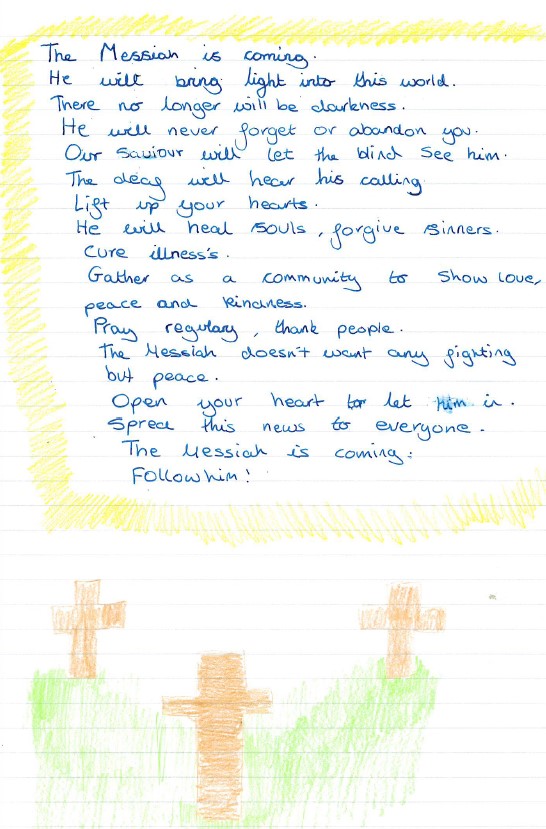 The Messiah is coming.
He will bring light into this world.
There no longer will be darkness.
He will never forget or abandon you.
Our Saviour will let the blind see him.
The deaf will hear his calling
Lift up your hearts.
He will heal souls, forgive sinners.
Cure illness's.
Gather as a community to show love,
peace and kindness.
Pray regulary, thank people.
The Messiah doesn't want any fighting
but peace.
Open your heart to let him in.
Spread this news to everyone.
The Messiah is coming.
Follow him!